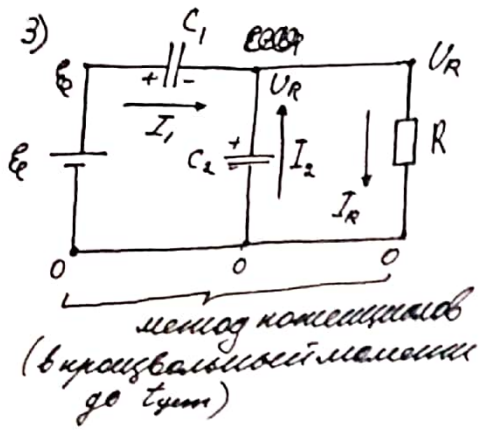 3)
C₁
ℰ
+ -
U_R
U_R
I₁
ℰ
C₂
+
I₂
I_R
R
0
0
0
метод потенциалов
(в произвольный момент
до t уст)